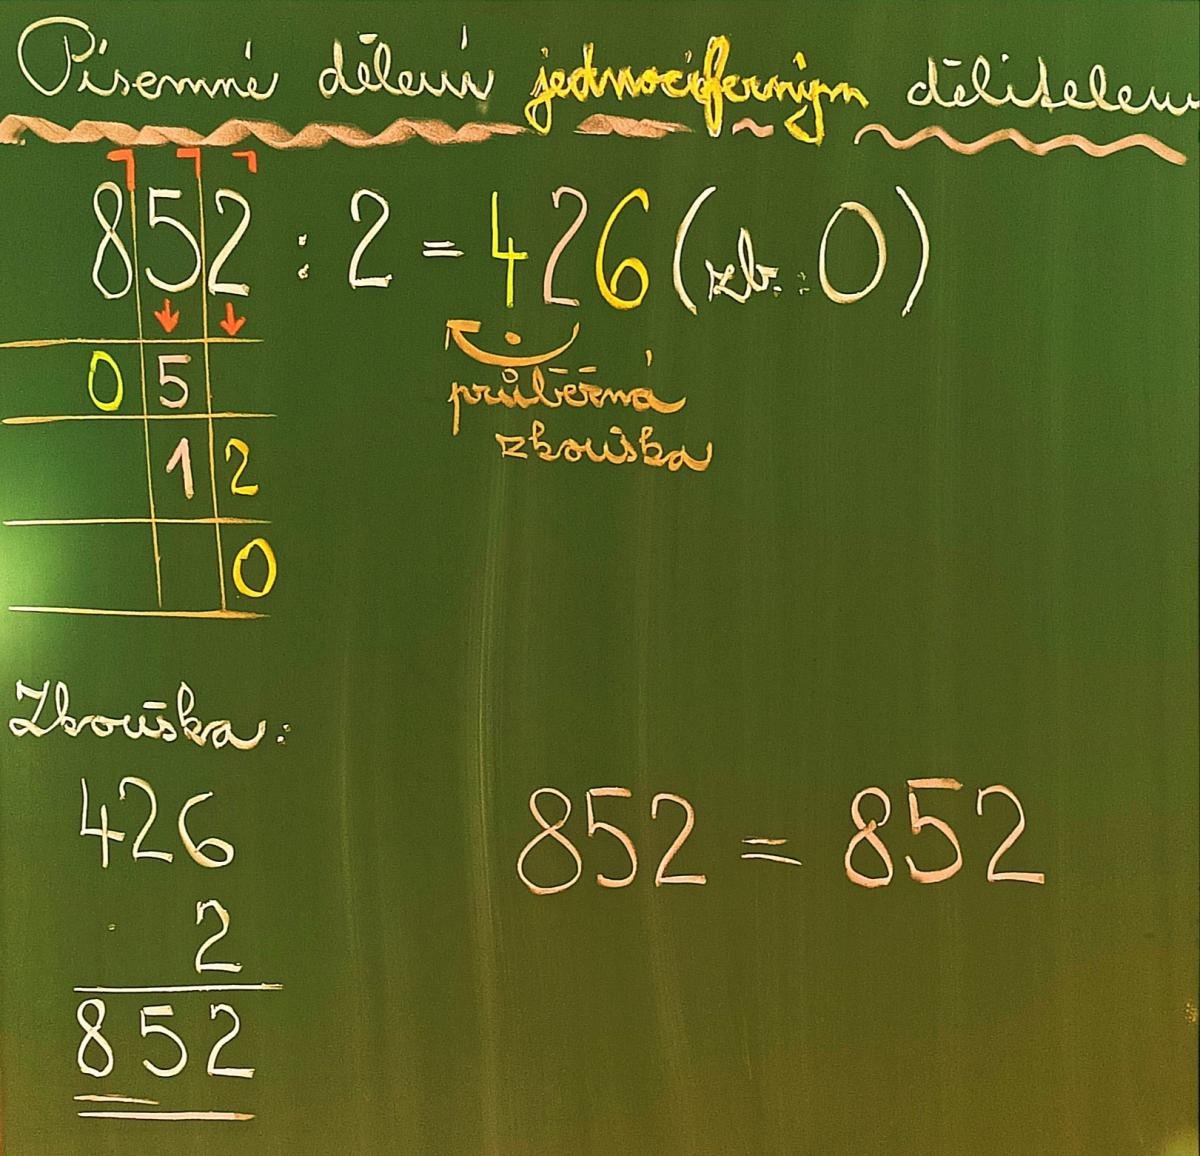 Písemné dělení jednociferným dělitelem
852 : 2 = 426 (zb.: 0)
0 5
průběžná
zkouška
1 2
0
Zkouška:
426
· 2
852
852 = 852